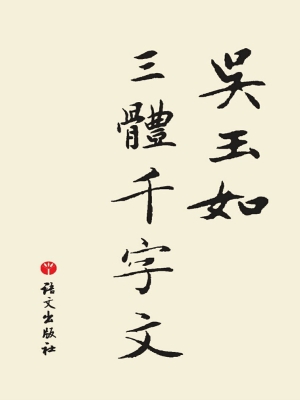 吳玉如
三體千字文
语文出版社